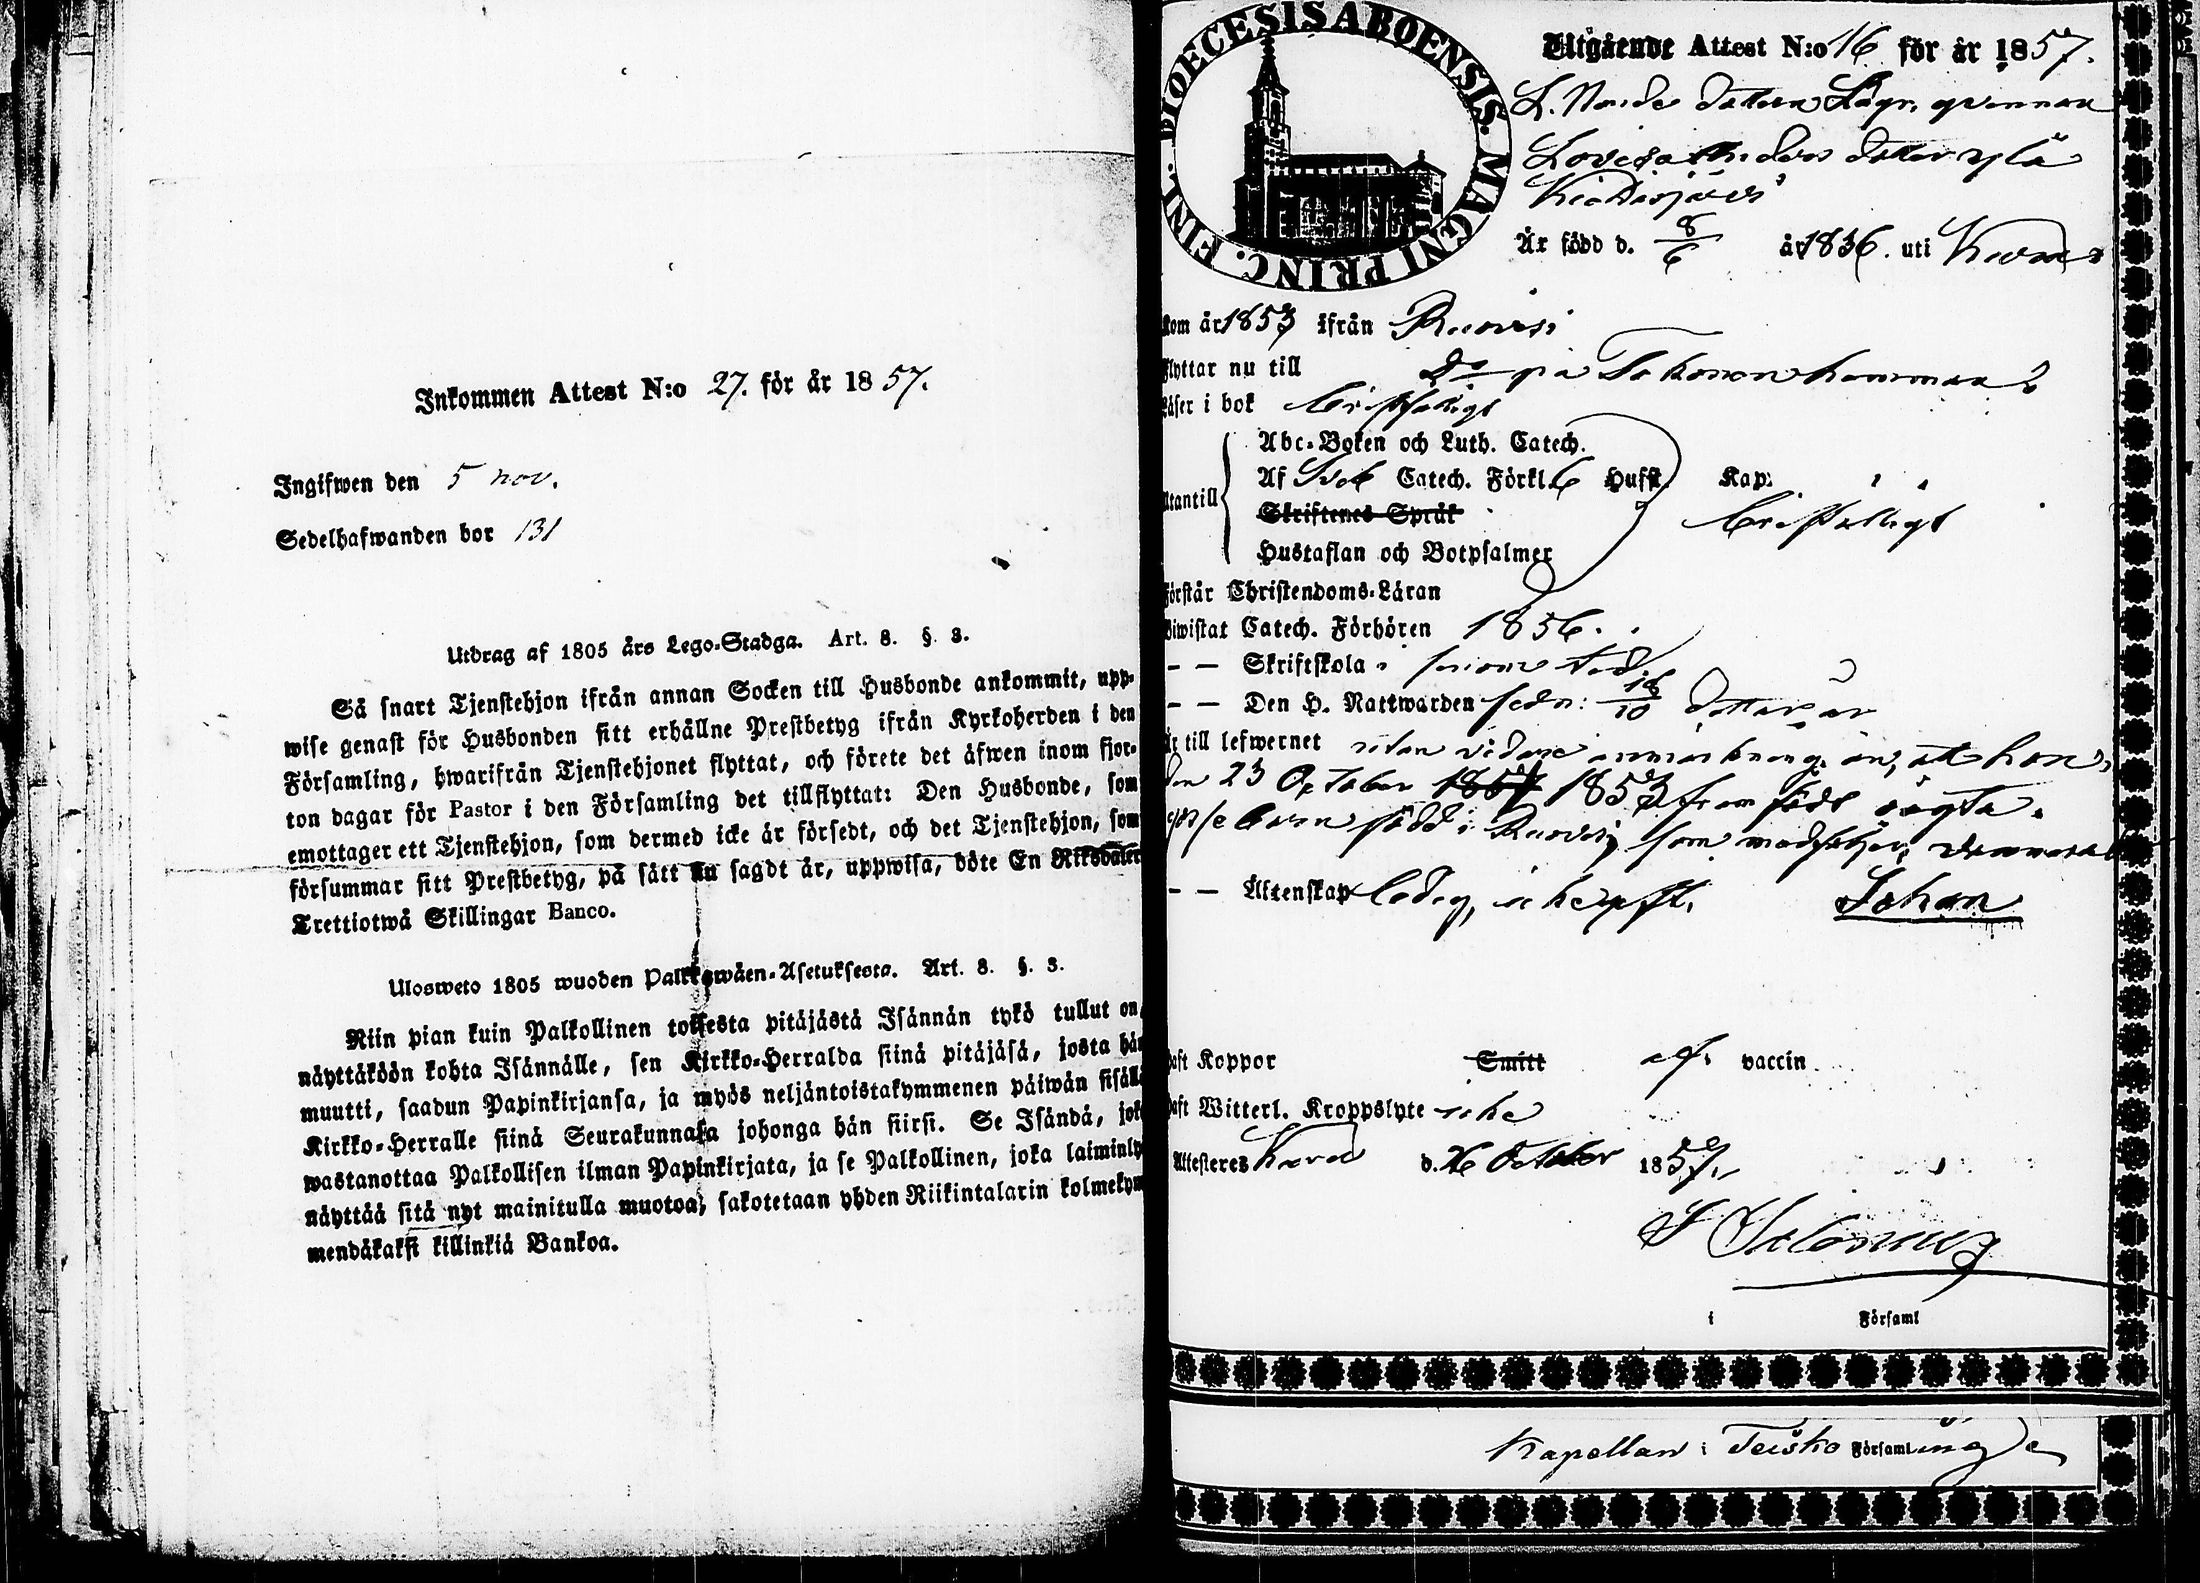 Inkommen Attest N:o 27. för år 1857.
Ingifwen den 5 nov.
Sedelhafwanden bor 131
Utdrag af 1805 års Lego-Stadga. Art. 8. §. 3.
Så snart Tjenstehjon ifrån annan Socken till Husbonde ankommit, upp-
wise genast för Husbonden sitt erhållne Prestbetyg ifrån Kyrkoherden i den
Församling, hwarifrån Tjenstehjonet flyttat, och förete det äfwen inom fjor-
ton dagar för Pastor i den Församling det tillflyttat: Den Husbonde, som
emottager ett Tjenstehjon, som dermed icke är försedt, och det Tjenstehjon, som
försummar sitt Prestbetyg, på sätt nu sagdt är, uppwisa, böte En Riksdaler
Trettiotwå Skillingar Banco.
Ulosweto 1805 wuoden Palkkawäen-Asetuksesta. Art. 8. §. 3.
Niin pian kuin Palkollinen toisesta pitäjästä Isännän tykö tullut on,
näyttäköön kohta Isännälle, sen Kirkko-Herralda siinä pitäjäsä, josta hän
muutti, saadun Papinkirjansa, ja myös neljäntoistakymmenen päiwän sisällä
Kirkko-Herralle siinä Seurakunnasa johonga hän siirsi. Se Isändä, joka
wastanottaa Palkollisen ilman Papinkirjata, ja se Palkollinen, joka laiminly
näyttää sitä nyt mainitulla muotoa, sakotetaan yhden Riikintalarin kolmekym
mendäkaksi killinkiä Bankoa.
DIOECESIS ABOENSIS. MAGNI PRINC. FINL.
Utgående Attest N:o 16 för år 1857.
dottern qvinnan
Lovisa Anders dotter
Är född d. 8/6 år 1836. uti
kom år 1853 ifrån Ruovesi
Flyttar nu till Do på
Läser i bok
Abc-Boken och Luth. Catech.
Af Catech. Förkl. Hufst. Kap.
Utantill
Skriftenes Språk
Hustaflan och Botpsalmer
Förstår Christendoms-Läran
Biwistat Catech. Förhören 1856.
– – Skriftskola
– – Den H. Nattwarden sedn:
Är till lefwernet utan vidare anmärkning än, att hon
den 23 October 1853 fram födt oägta
född i Ruovesi som medföljer
– – Äktenskap ledig, icke Johan
Haft Koppor Smitt af vaccin
Haft Witterl. Kroppslyte icke
Attesteres d. October 1857.
i Församl
Kapellan i Teisko Församling